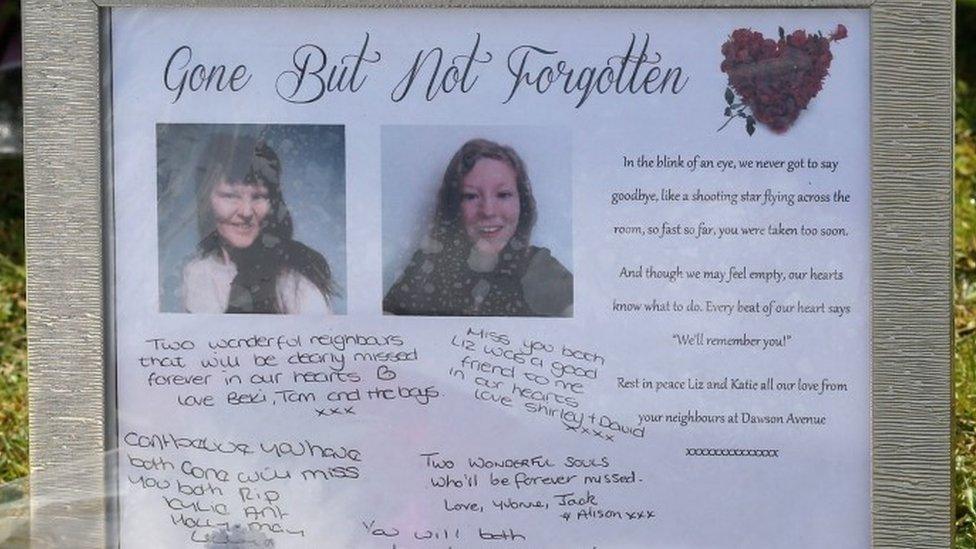 Gone But Not Forgotten
In the blink of an eye, we never got to say
goodbye, like a shooting star flying across the
room, so fast so far, you were taken too soon.
And though we may feel empty, our hearts
know what to do. Every beat of our heart says
“We'll remember you!”
Rest in peace Liz and Katie all our love from
your neighbours at Dawson Avenue
xxxxxxxxxxxxxx
Two wonderful neighbours
that will be dearly missed
forever in our hearts
love Beki, Tom and the boys.
xxx
Miss you both
Liz was a good
friend to me
in our hearts
love Shirley + David
xxxx
Cant believe you have
both gone will miss
you both Rip
Kylie Ant
Holly May
Two wonderful souls
who'll be forever missed.
Love, Yvonne, Jack
& Alison xxx
You will both